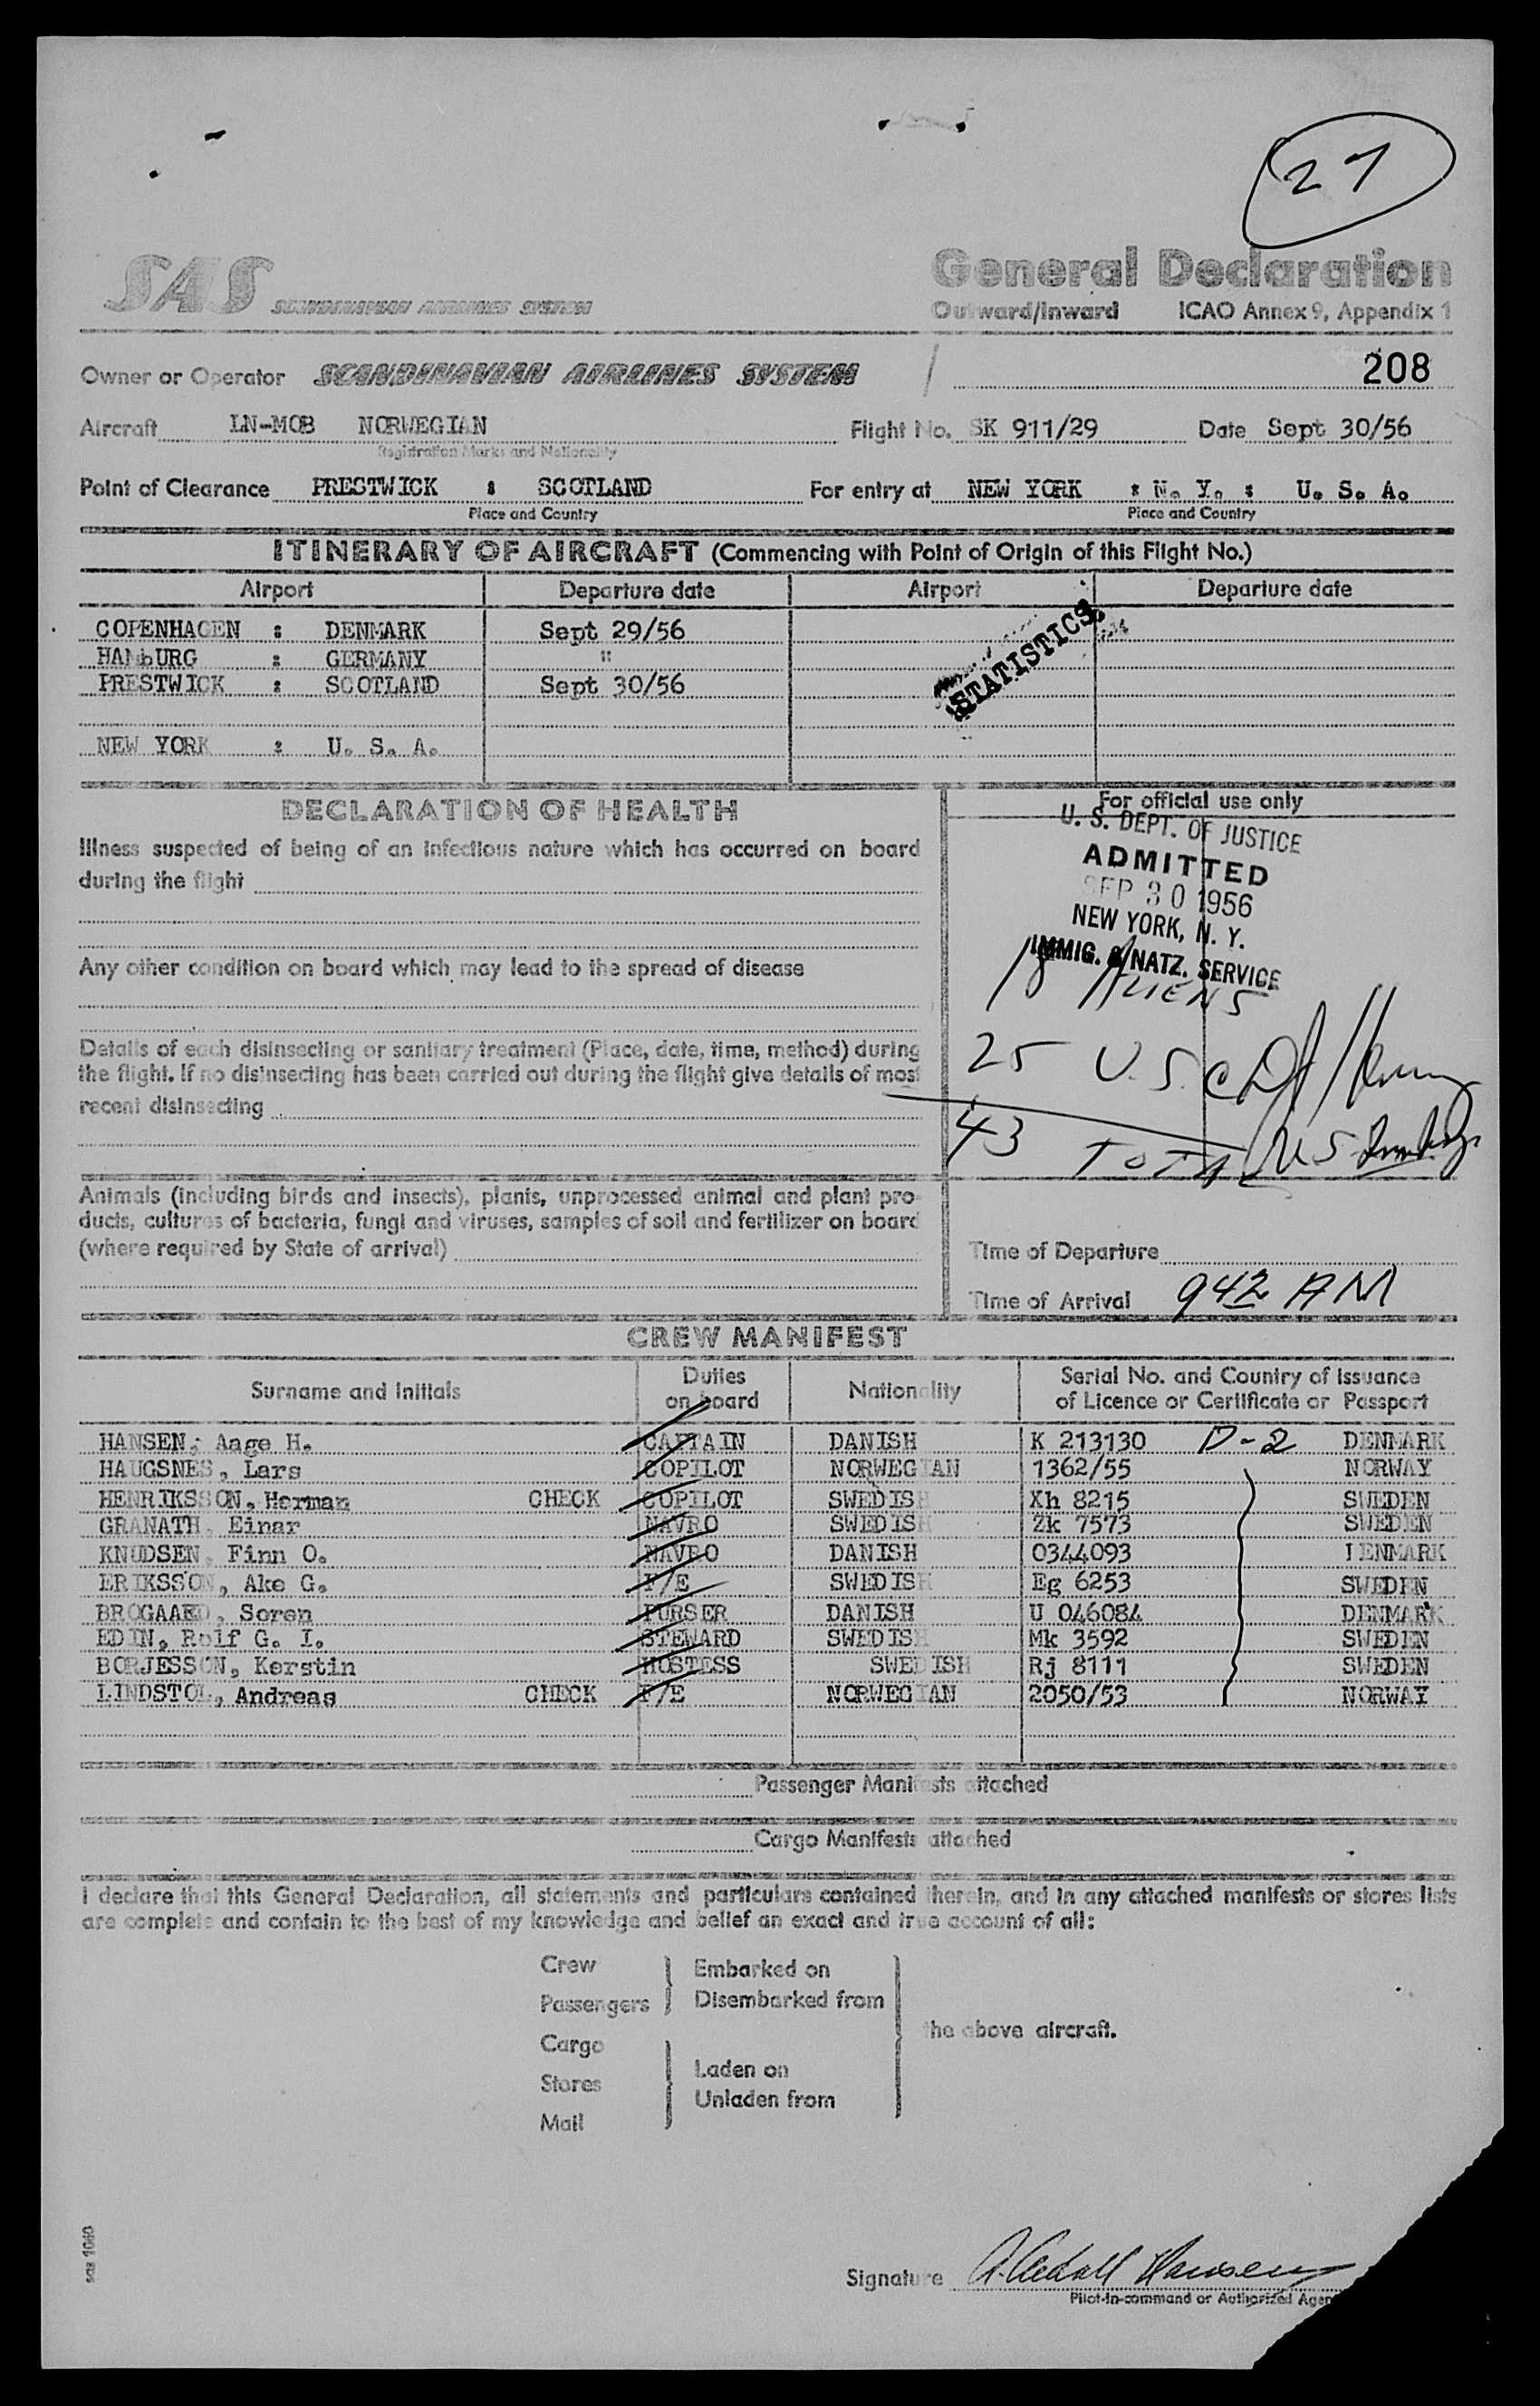 27
SAS SCANDINAVIAN AIRLINES SYSTEM
General Declaration
Outward/Inward ICAO Annex 9, Appendix 1
Owner or Operator SCANDINAVIAN AIRLINES SYSTEM 208
Aircraft LN-MOB NORWEGIAN Flight No. SK 911/29 Date Sept 30/56
Registration Marks and Nationality
Point of Clearance PRESTWICK : SCOTLAND For entry at NEW YORK : N. Y. : U. S. A.
Place and Country Place and Country
ITINERARY OF AIRCRAFT (Commencing with Point of Origin of this Flight No.)
Airport Departure date Airport Departure date
COPENHAGEN : DENMARK Sept 29/56
HAMbURG : GERMANY "
PRESTWICK : SCOTLAND Sept 30/56
STATISTICS
NEW YORK : U. S. A.
DECLARATION OF HEALTH
Illness suspected of being of an infectious nature which has occurred on board
during the flight
Any other condition on board which may lead to the spread of disease
Details of each disinsecting or sanitary treatment (Place, date, time, method) during
the flight. If no disinsecting has been carried out during the flight give details of most
recent disinsecting
Animals (including birds and insects), plants, unprocessed animal and plant pro-
ducts, cultures of bacteria, fungi and viruses, samples of soil and fertilizer on board
(where required by State of arrival)
For official use only
U. S. DEPT. OF JUSTICE
ADMITTED
SEP 30 1956
NEW YORK, N. Y.
IMMIG. & NATZ. SERVICE
18 ALIENS
25 U.S.C
43 TOTAL
Time of Departure
Time of Arrival 942 AM
CREW MANIFEST
Surname and Initials Duties on board Nationality Serial No. and Country of Issuance of Licence or Certificate or Passport
HANSEN, Aage H. CAPTAIN DANISH K 213130 D-2 DENMARK
HAUGSNES, Lars COPILOT NORWEGIAN 1362/55 NORWAY
HENRIKSSON, Herman CHECK COPILOT SWEDISH Xh 8215 SWEDEN
GRANATH, Einar NAVRO SWEDISH Zk 7573 SWEDEN
KNUDSEN, Finn O. NAVRO DANISH 0344093 DENMARK
ERIKSSON, Ake G. F/E SWEDISH Eg 6253 SWEDEN
BROGAARD, Soren PURSER DANISH U 046084 DENMARK
EDIN, Rolf G. I. STEWARD SWEDISH Mk 3592 SWEDEN
BORJESSON, Kerstin HOSTESS SWEDISH Rj 8111 SWEDEN
LINDSTOL, Andreas CHECK F/E NORWEGIAN 2050/53 NORWAY
Passenger Manifests attached
Cargo Manifests attached
I declare that this General Declaration, all statements and particulars contained therein, and in any attached manifests or stores lists
are complete and contain to the best of my knowledge and belief an exact and true account of all:
Crew
Passengers
Embarked on
Disembarked from
Cargo
Stores
Mail
Laden on
Unladen from
the above aircraft.
sas 1060
Signature Hansen
Pilot-in-command or Authorized Agen